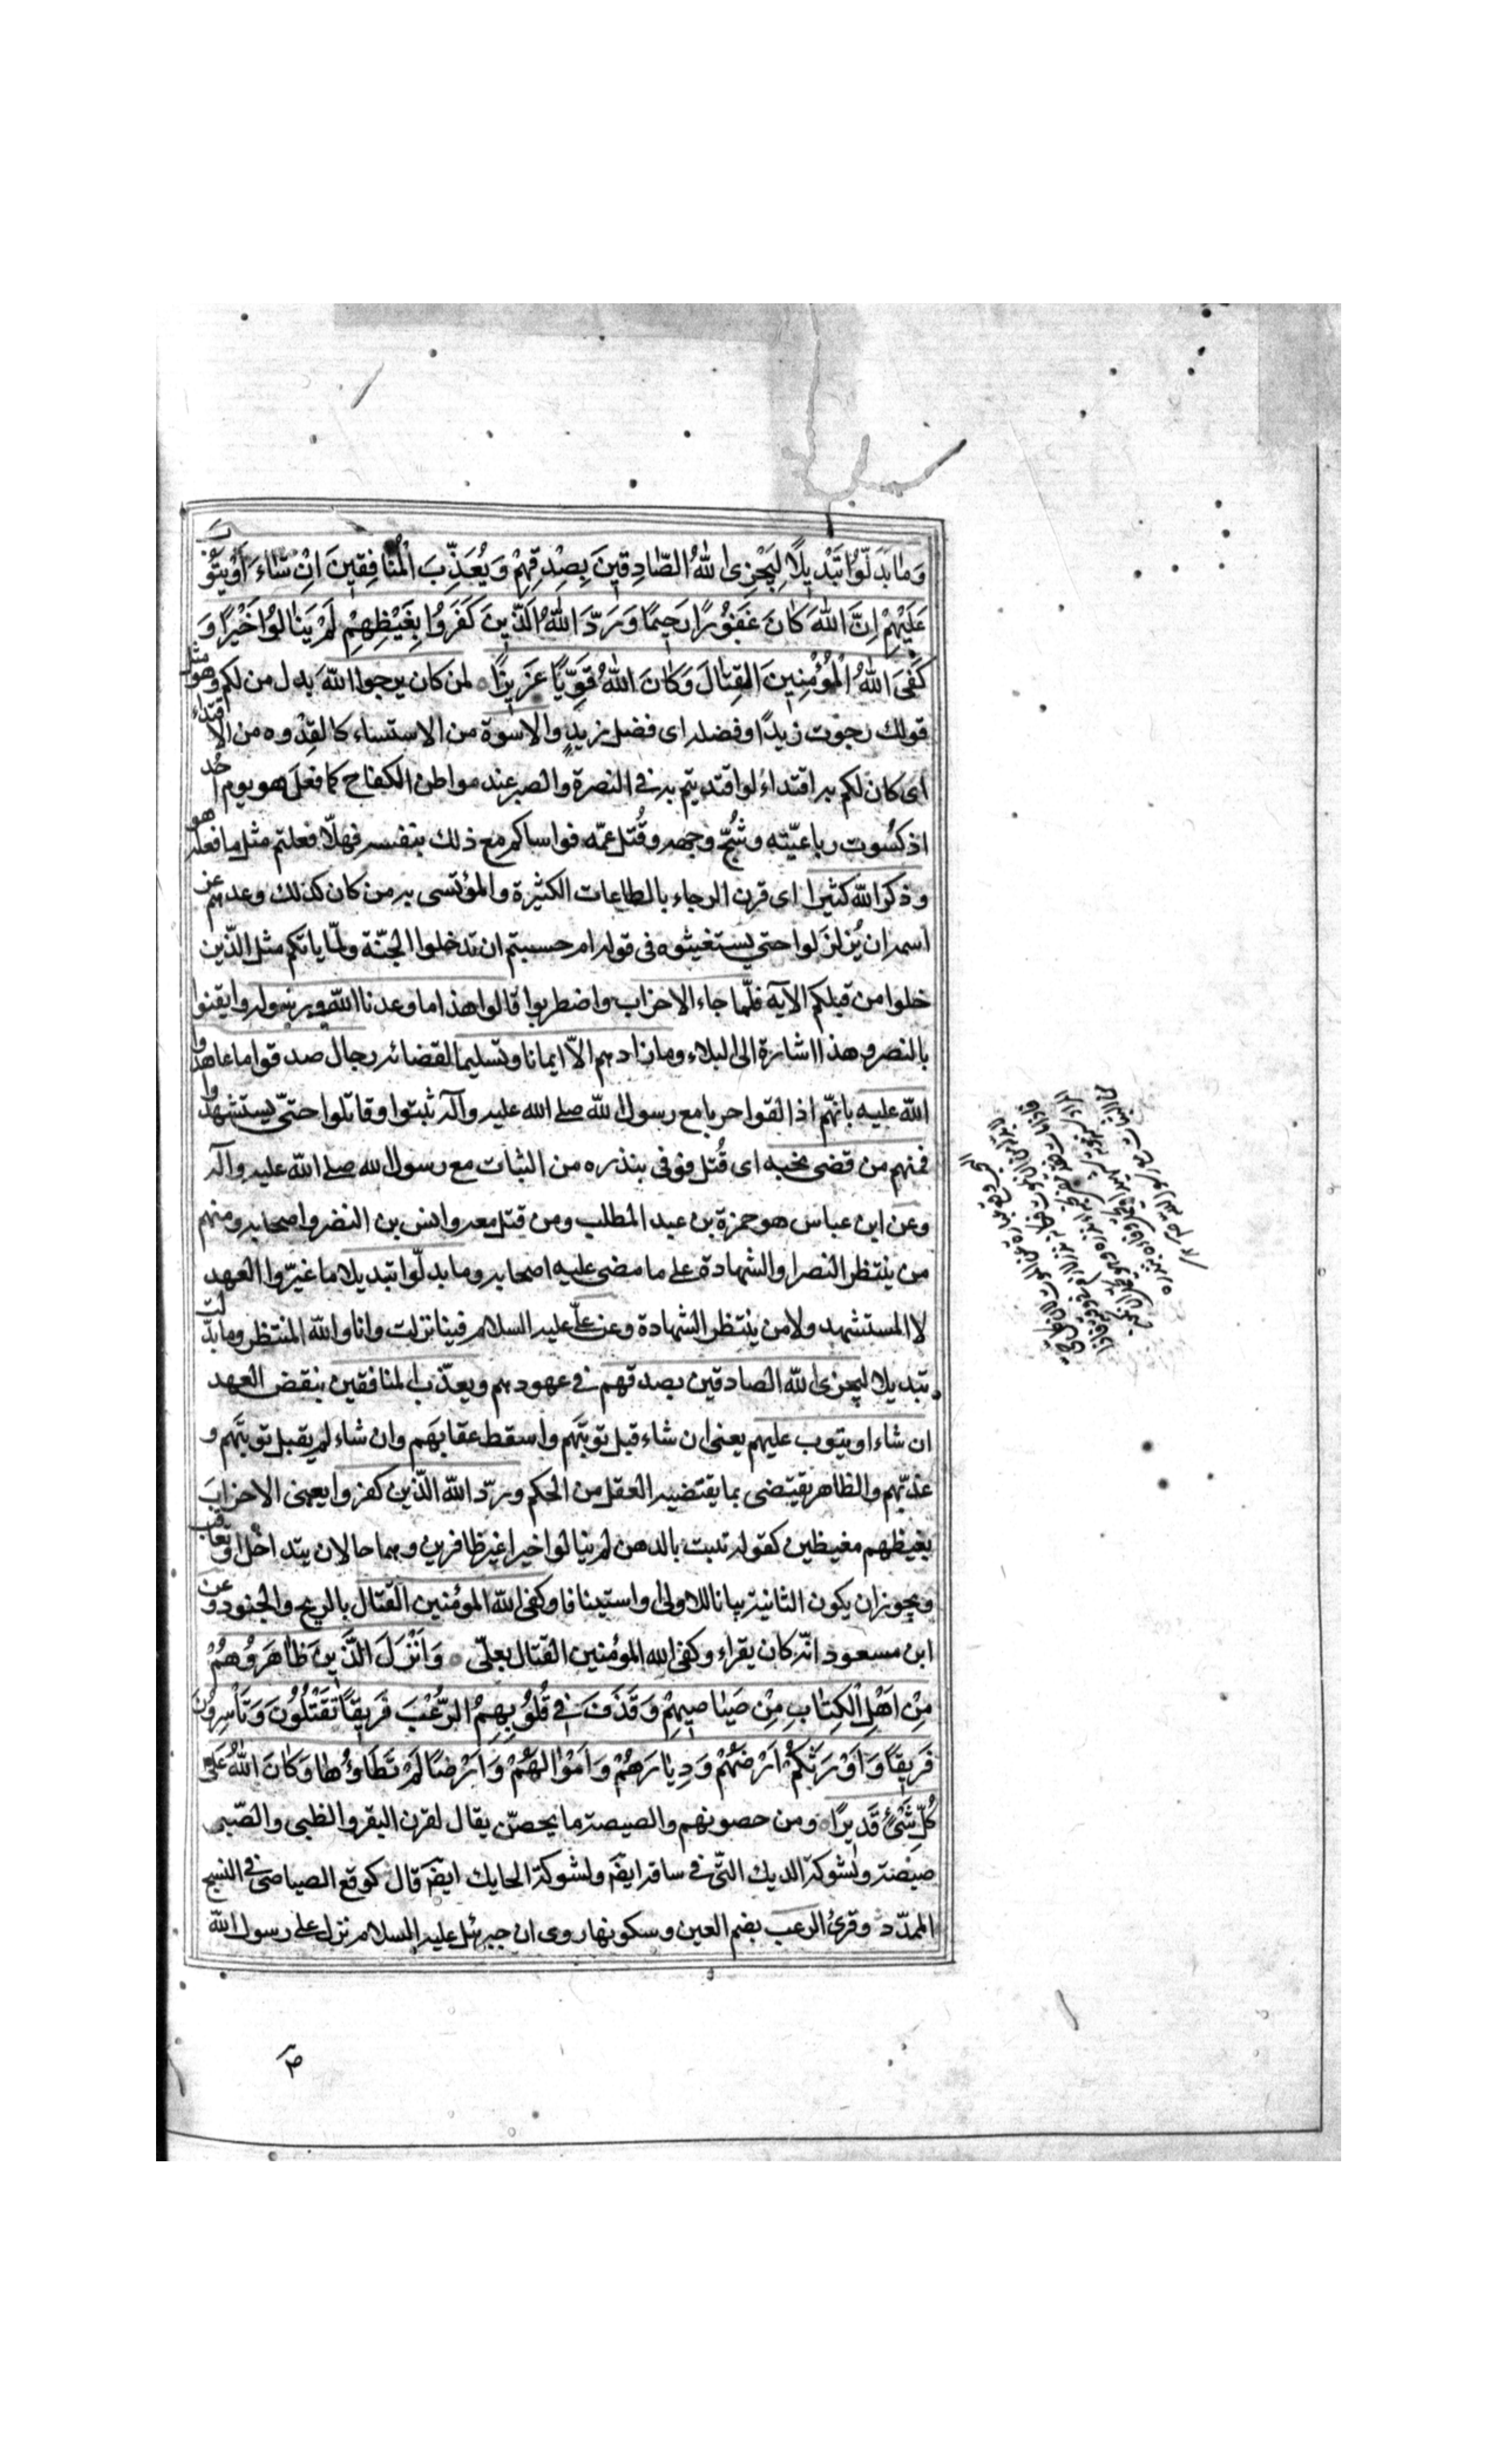 وَمَا بَدَّلُوا تَبْدِيلًا لِيَجْزِيَ اللهُ الصَّادِقِينَ بِصِدْقِهِمْ وَيُعَذِّبَ الْمُنَافِقِينَ اِنْ شَاءَ اَوْ يَتُوبَ
عَلَيْهِمْ اِنَّ اللهَ كَانَ غَفُورًا رَحِيمًا وَرَدَّ اللهُ الَّذِينَ كَفَرُوا بِغَيْظِهِمْ لَمْ يَنَالُوا خَيْرًا وَ
كَفَى اللهُ الْمُؤْمِنِينَ الْقِتَالَ وَكَانَ اللهُ قَوِيًّا عَزِيزًا لمن كان يرجوا الله بدل من لكم وهو مثل
قولك رجوت زيدًا وفضله اى فضل زيدٍ والاسوة من الاستساء كالقِدْوه من الاقتداء
اى كان لكم به اقتداء لو اقتديتم به فى النصرة والصبر عند مواطن الكفاح كما فعلَ هو يوم اُحُد
اذ كسُرت رباعيّته وشُجّ وجهه وقُتل عمّه فواساكم مع ذلك بنفسه فهلّا فعلتم مثل ما فعله هو
وذكر الله كثيرا اى قرن الرجاء بالطاعات الكثيرة والمؤتسى به من كان كذلك وعدهم عز
اسمه ان يُزلزَلوا حتى يستغيثوه فى قوله ام حسبتم ان تدخلوا الجنّة ولمّا ياتكم مثل الذين
خلوا من قبلكم الآيه فلمّا جاء الاحزاب واضطربوا قالوا هذا ما وعدنا الله ورسوله وايقنوا
بالنصر و هذا اشارة الى البلاء وما زادهم الّا ايمانا وتسليما لقضائه رجال صدقوا ما عاهدوا
الله عليه بانّهم اذا لقوا حربا مع رسول الله صلى الله عليه وآله ثبتوا وقاتلوا حتى يستشهدوا
فمنهم من قضى نحبه اى قُتل فوفى بنذره من الثبات مع رسول الله صلى الله عليه وآله
وعن ابن عباس هو حمزة بن عبد المطلب ومن قتل معه وانس بن النضر واصحابه ومنهم
من ينتظر النصر او الشهادة على ما مضى عليه اصحابه وما بدلوا تبديلا ما غيّروا العهد
لا المستشهد ولا من ينتظر الشهادة وعن علىّ عليه السلام فينا نزلت وانا والله المنتظر وما بدّلت
تبديلا ليجزى الله الصادقين بصدقهم فى عهودهم ويعذّب المنافقين بنقض العهد
ان شاء او يتوب عليهم يعنى ان شاء قبل توبتهم واسقط عقابَهم وان شاء لم يقبل توبتَهم و
عذبّهم والظاهر يقتضى بما يقتضيه العقل من الحكم وردّ الله الذين كفروا يعنى الاحزابَ
بغيظهم مغيظين كقوله تنبت بالدهن لم ينالوا خيرا غير ظافرين وهما حالان بتداخل او تعاقب
ويجوز ان يكون الثانية بيانا للاولى او استينافا وكفى الله المؤمنين القتال بالريح والجنود وعن
ابن مسعود انّه كان يقراء وكفى الله المؤمنين القتال بعلىّ وَاَنْزَلَ الَّذِينَ ظَاهَرُوهُمْ
مِنْ اَهْلِ الْكِتَابِ مِنْ صَيَاصِيهِمْ وَقَذَفَ فِي قُلُوبِهِمُ الرُّعْبَ فَرِيقًا تَقْتُلُونَ وَتَأْسِرُونَ
فَرِيقًا وَاَوْرَثَكُمْ اَرْضَهُمْ وَدِيَارَهُمْ وَاَمْوَالَهُمْ وَاَرْضًا لَمْ تَطَاؤُهَا وَكَانَ اللهُ عَلَى
كُلِّ شَيْءٍ قَدِيرًا ومن حصونهم والصيصة ما يحصّن يقال لقرن البقر والظبى والصّيصى
صيصة ولشوكة الديك التى فى ساقه ايضَ ولشوكة الحايك ايضَ قال كوقع الصياصى فى النسج
الممدّد وقرئ الرعب بضم العين وسكونها روى ان جبرئيل عليه السلام نزل على رسول الله